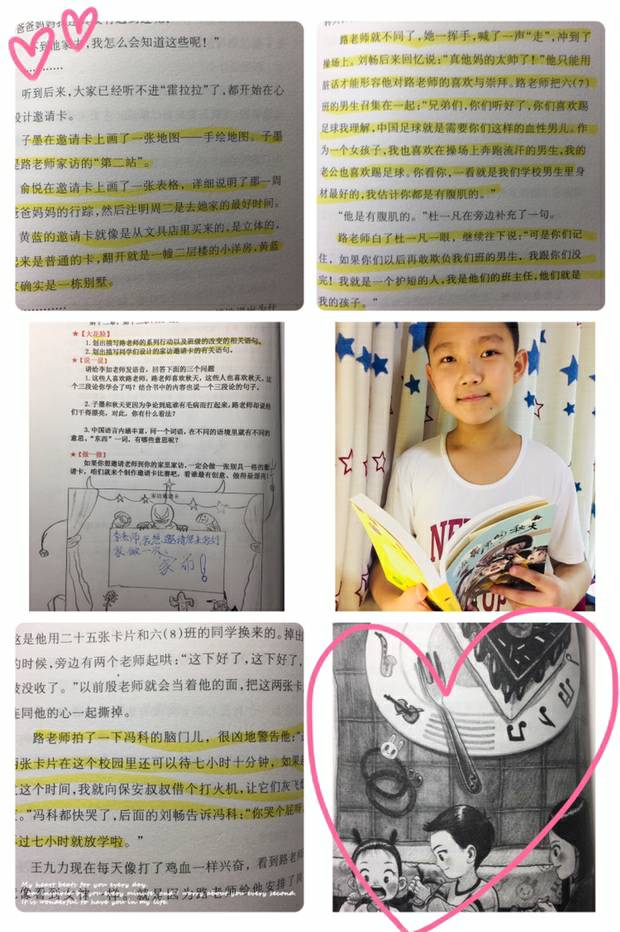 不到他家去,我怎么会知道这些呢!”
…………
听到后来,大家已经听不进“霍拉拉”了,都开始在心
设计邀请卡。
子墨在邀请卡上画了一张地图——手绘地图。子墨
是路老师家访的“第二站”。
俞悦在邀请卡上画了一张表格,详细说明了那一周
爸爸妈妈的行踪,然后注明周二是去她家的最好时间。
黄蓝的邀请卡就像是从文具店里买来的,是立体的,
起来是普通的卡,翻开就是一幢二层楼的小洋房,黄蓝
确实是一栋别墅。
路老师就不同了,她一挥手,喊了一声“走”,冲到了
操场上。刘畅后来回忆说:“真他妈的太帅了!”他只能用
脏话才能形容他对路老师的喜欢与崇拜。路老师把六(7)
班的男生召集在一起:“兄弟们,你们听好了,你们喜欢踢
足球我理解,中国足球就是需要你们这样的血性男儿。作
为一个女孩子,我也喜欢在操场上奔跑流汗的男生,我的
老公也喜欢踢足球。你看你,一看就是我们学校男生里身
材最好的,我估计你都是有腹肌的。”
“他是有腹肌的。”杜一凡在旁边补充了一句。
路老师白了杜一凡一眼,继续往下说:“可是你们记
住,如果你们以后再敢欺负我们班的男生,我跟你们没
完!我就是一个护短的人,我是他们的班主任,他们就是
我的孩子。”
★【大花脸】
1. 划出描写路老师的系列行动以及班级的改变的相关语句。
2. 划出描写同学们设计的家访邀请卡的有关语句。
★【说一说】
请给李如老师发语音,回答下面的三个问题
1. 这些人喜欢路老师,路老师喜欢秋天,这些人也喜欢秋天。这
个三段论你学会了吗?结合书中的内容也说一个三段论的句子。
2. 子墨和秋天更因为争论到底谁有毛病而打起来,路老师却说他
们干得漂亮,对此,你有什么看法?
3. 中国语言内涵丰富,同一个词语,在不同的语境里就有不同的
意思,“东西”一词,有哪些意思呢?
★【做一做】
如果你想邀请老师到你的家里家访,一定会做一张别具一格的邀
请卡,咱们就来个制作邀请卡比赛吧,看谁最有创意,做得最漂亮!
家访邀请卡
家做一次
家访!
的秋天
这是他用二十五张卡片和六(8)班的同学换来的。掉出
的时候,旁边有两个老师起哄:“这下好了,这下好了,
被没收了。”以前殷老师就会当着他的面,把这两张卡
连同他的心一起撕掉。
路老师拍了一下冯科的脑门儿,很凶地警告他:“
两张卡片在这个校园里还可以待七小时十分钟,如果超
过这个时间,我就向保安叔叔借个打火机,让它们灰飞烟
。”冯科都快哭了,后面的刘畅告诉冯科:“你哭个屁呀
过七小时就放学啦。”
王九力现在每天像打了鸡血一样兴奋,看到路老师
My heart beats for you every day.
I am inspired by you every minute, and I worry about you every second.
It is wonderful to have you in my life.